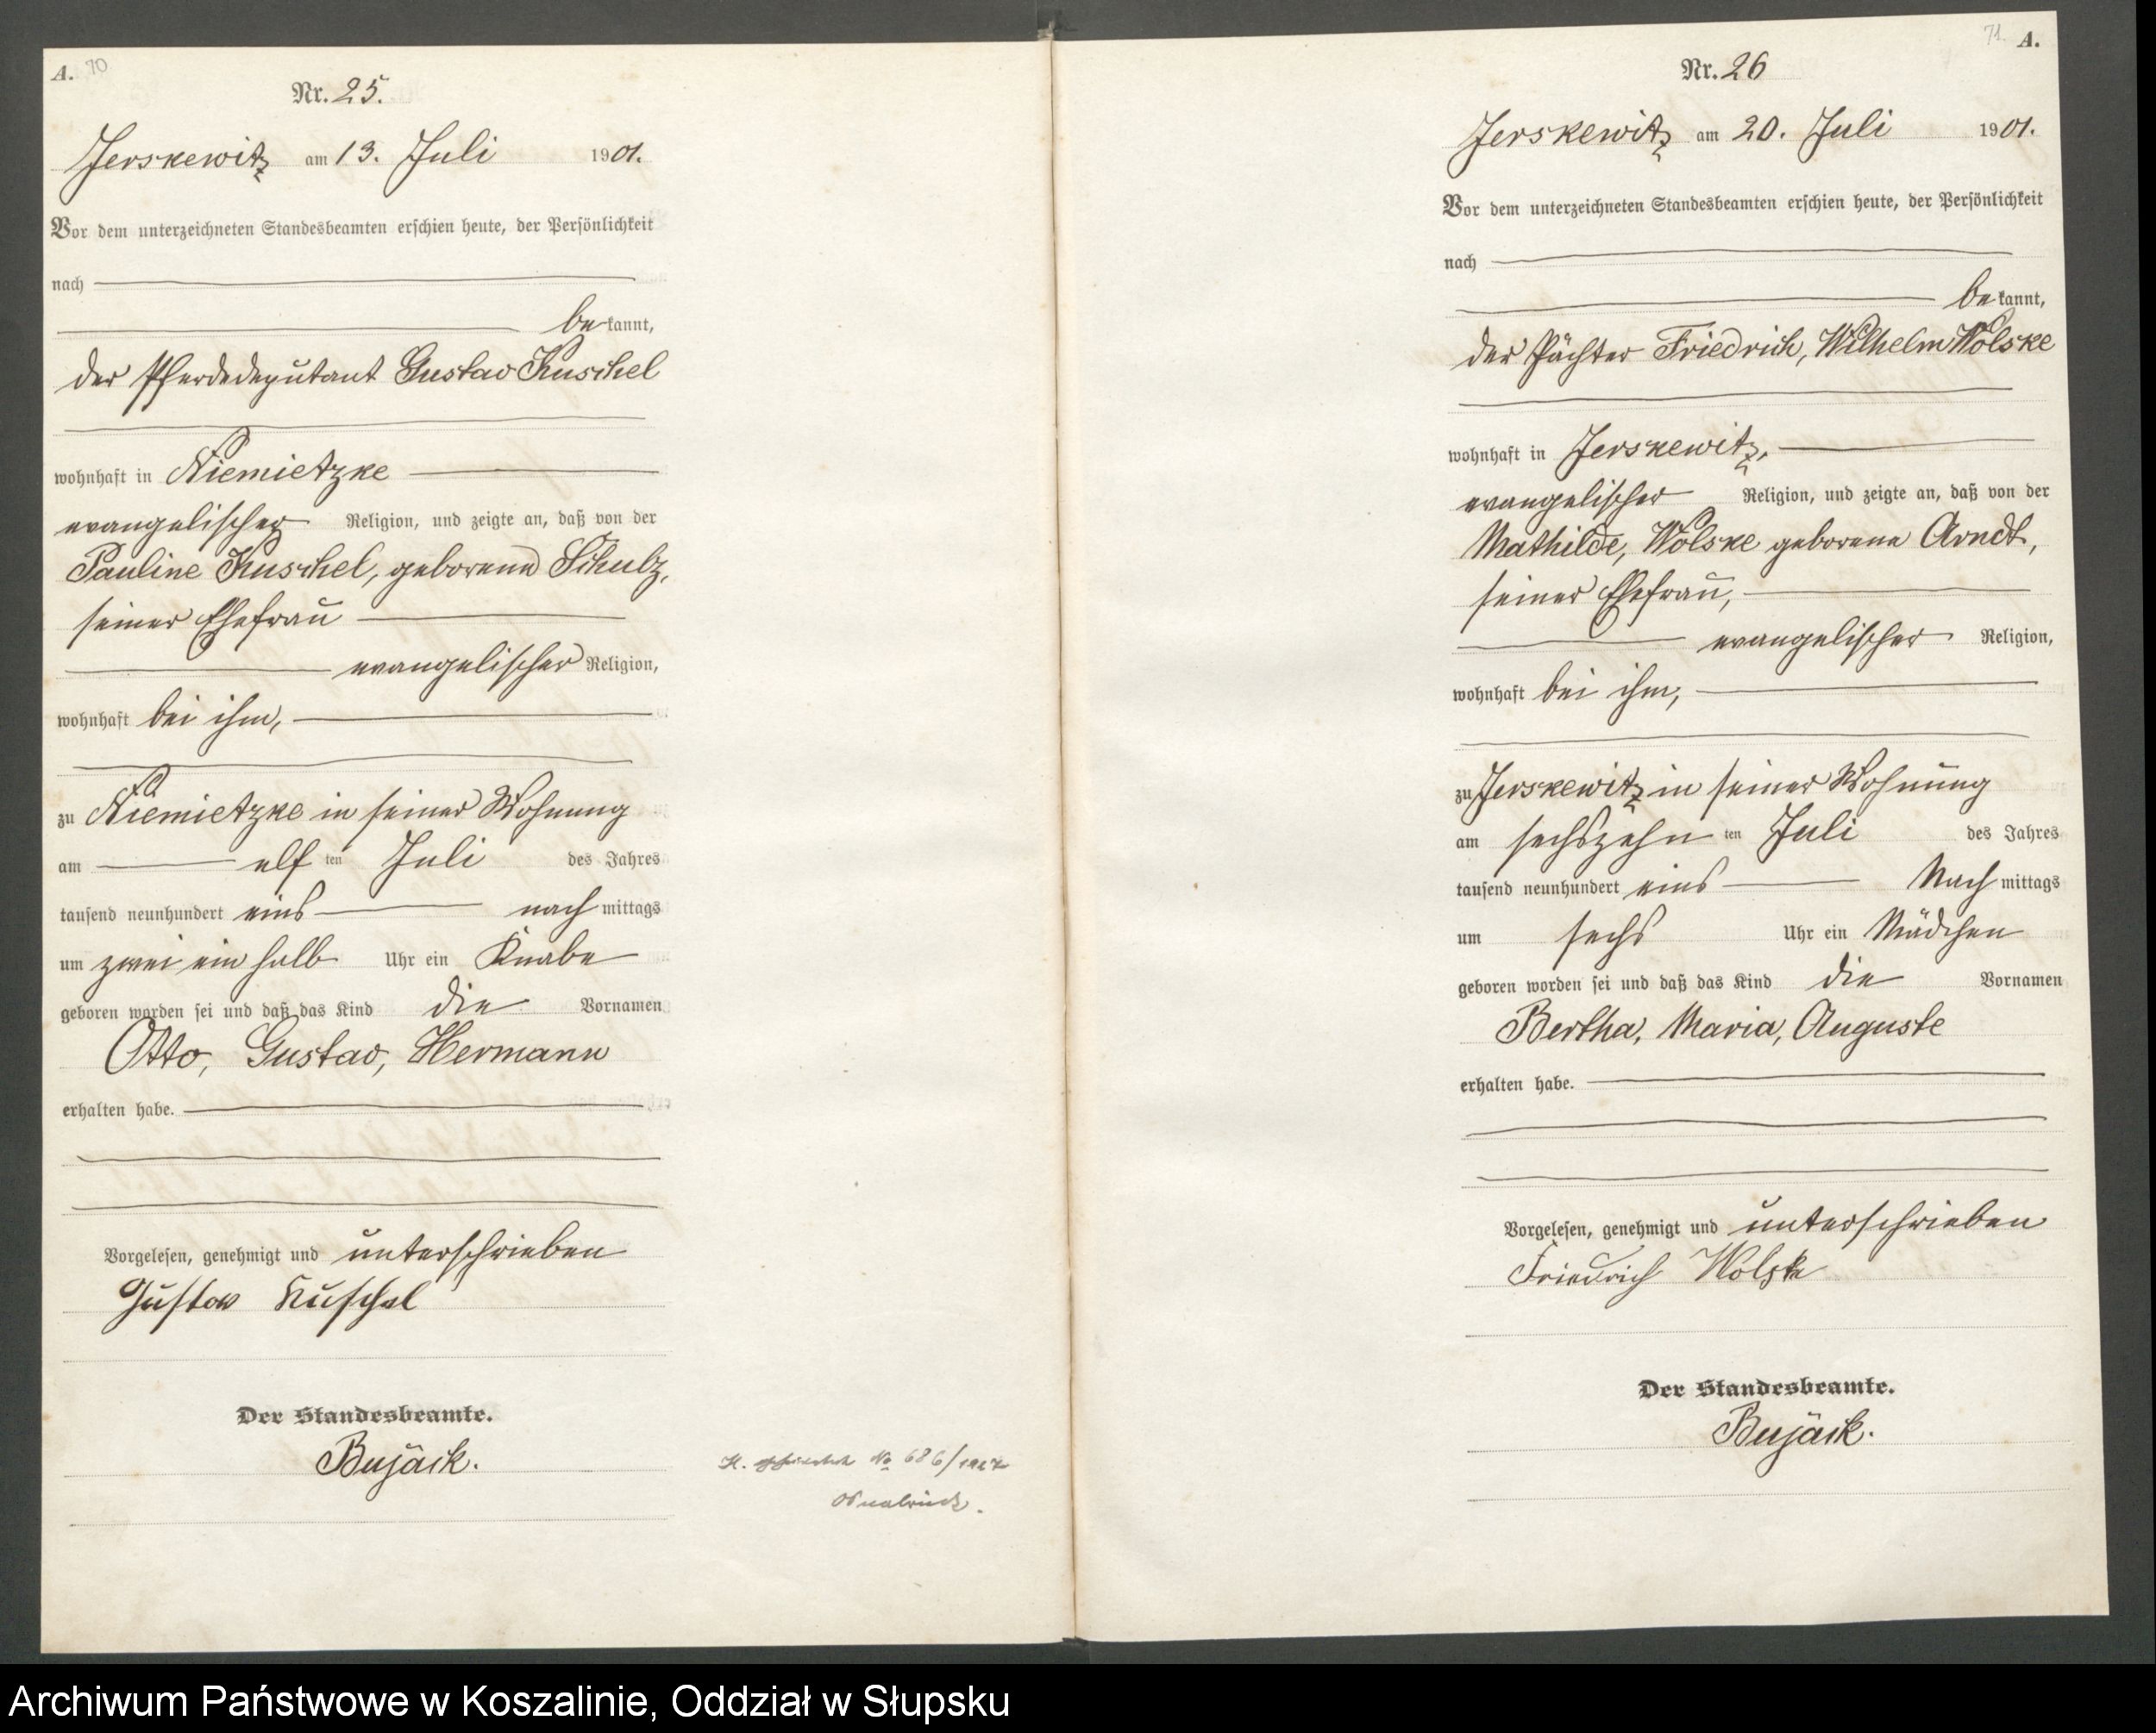 A. 70
Nr. 25.
Jerskewitz am 13. Juli 1901.
Vor dem unterzeichneten Standesbeamten erschien heute, der Persönlichkeit
nach
bekannt,
der Pferdedeputant Gustav Kuschel
wohnhaft in Niemietzke
evangelischer Religion, und zeigte an, daß von der
Pauline Kuschel, geborene Schulz,
seiner Ehefrau
evangelischer Religion,
wohnhaft bei ihm,
zu Niemietzke in seiner Wohnung
am elf ten Juli des Jahres
tausend neunhundert eins nach mittags
um zwei ein halb Uhr ein Knabe
geboren worden sei und daß das Kind die Vornamen
Otto, Gustav, Hermann
erhalten habe.
Vorgelesen, genehmigt und unterschrieben
Gustav Kuschel
Der Standesbeamte.
Bujack.
H. No 686/1927
Osnabrück.
71. A.
Nr. 26
Jerskewitz am 20. Juli 1901.
Vor dem unterzeichneten Standesbeamten erschien heute, der Persönlichkeit
nach
bekannt,
der Pächter Friedrich, Wilhelm Wolske
wohnhaft in Jerskewitz,
evangelischer Religion, und zeigte an, daß von der
Mathilde, Wolske geborene Arndt,
seiner Ehefrau,
evangelischer Religion,
wohnhaft bei ihm,
zu Jerskewitz in seiner Wohnung
am sechszehn ten Juli des Jahres
tausend neunhundert eins Nach mittags
um sechs Uhr ein Mädchen
geboren worden sei und daß das Kind die Vornamen
Bertha, Maria, Auguste
erhalten habe.
Vorgelesen, genehmigt und unterschrieben
Friedrich Wolske
Der Standesbeamte.
Bujack.
Archiwum Państwowe w Koszalinie, Oddział w Słupsku